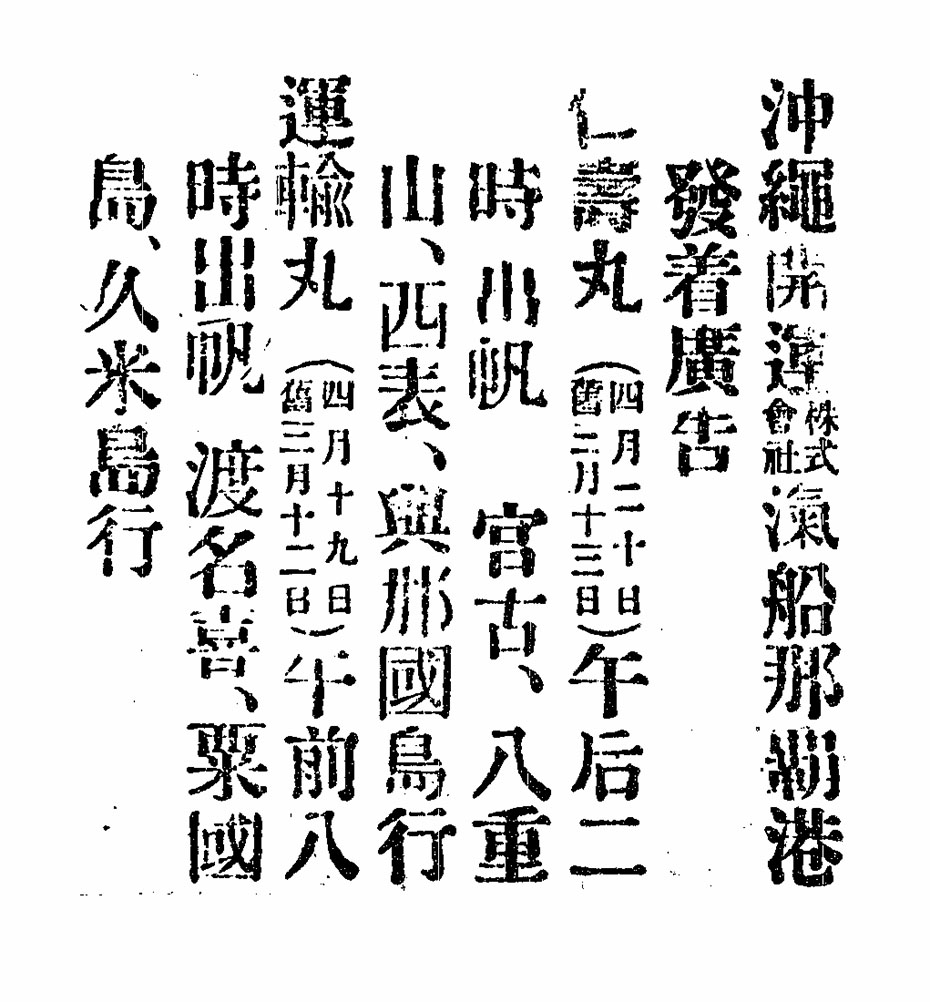 沖繩開運株式會社滊船那覇港
發着廣告
仁壽丸（四月二十日舊二月十三日）午后二
時出帆　宮古、八重
山、西表、興那國島行
運輸丸（四月十九日舊三月十二日）午前八
時出帆　渡名喜、粟國
島、久米島行